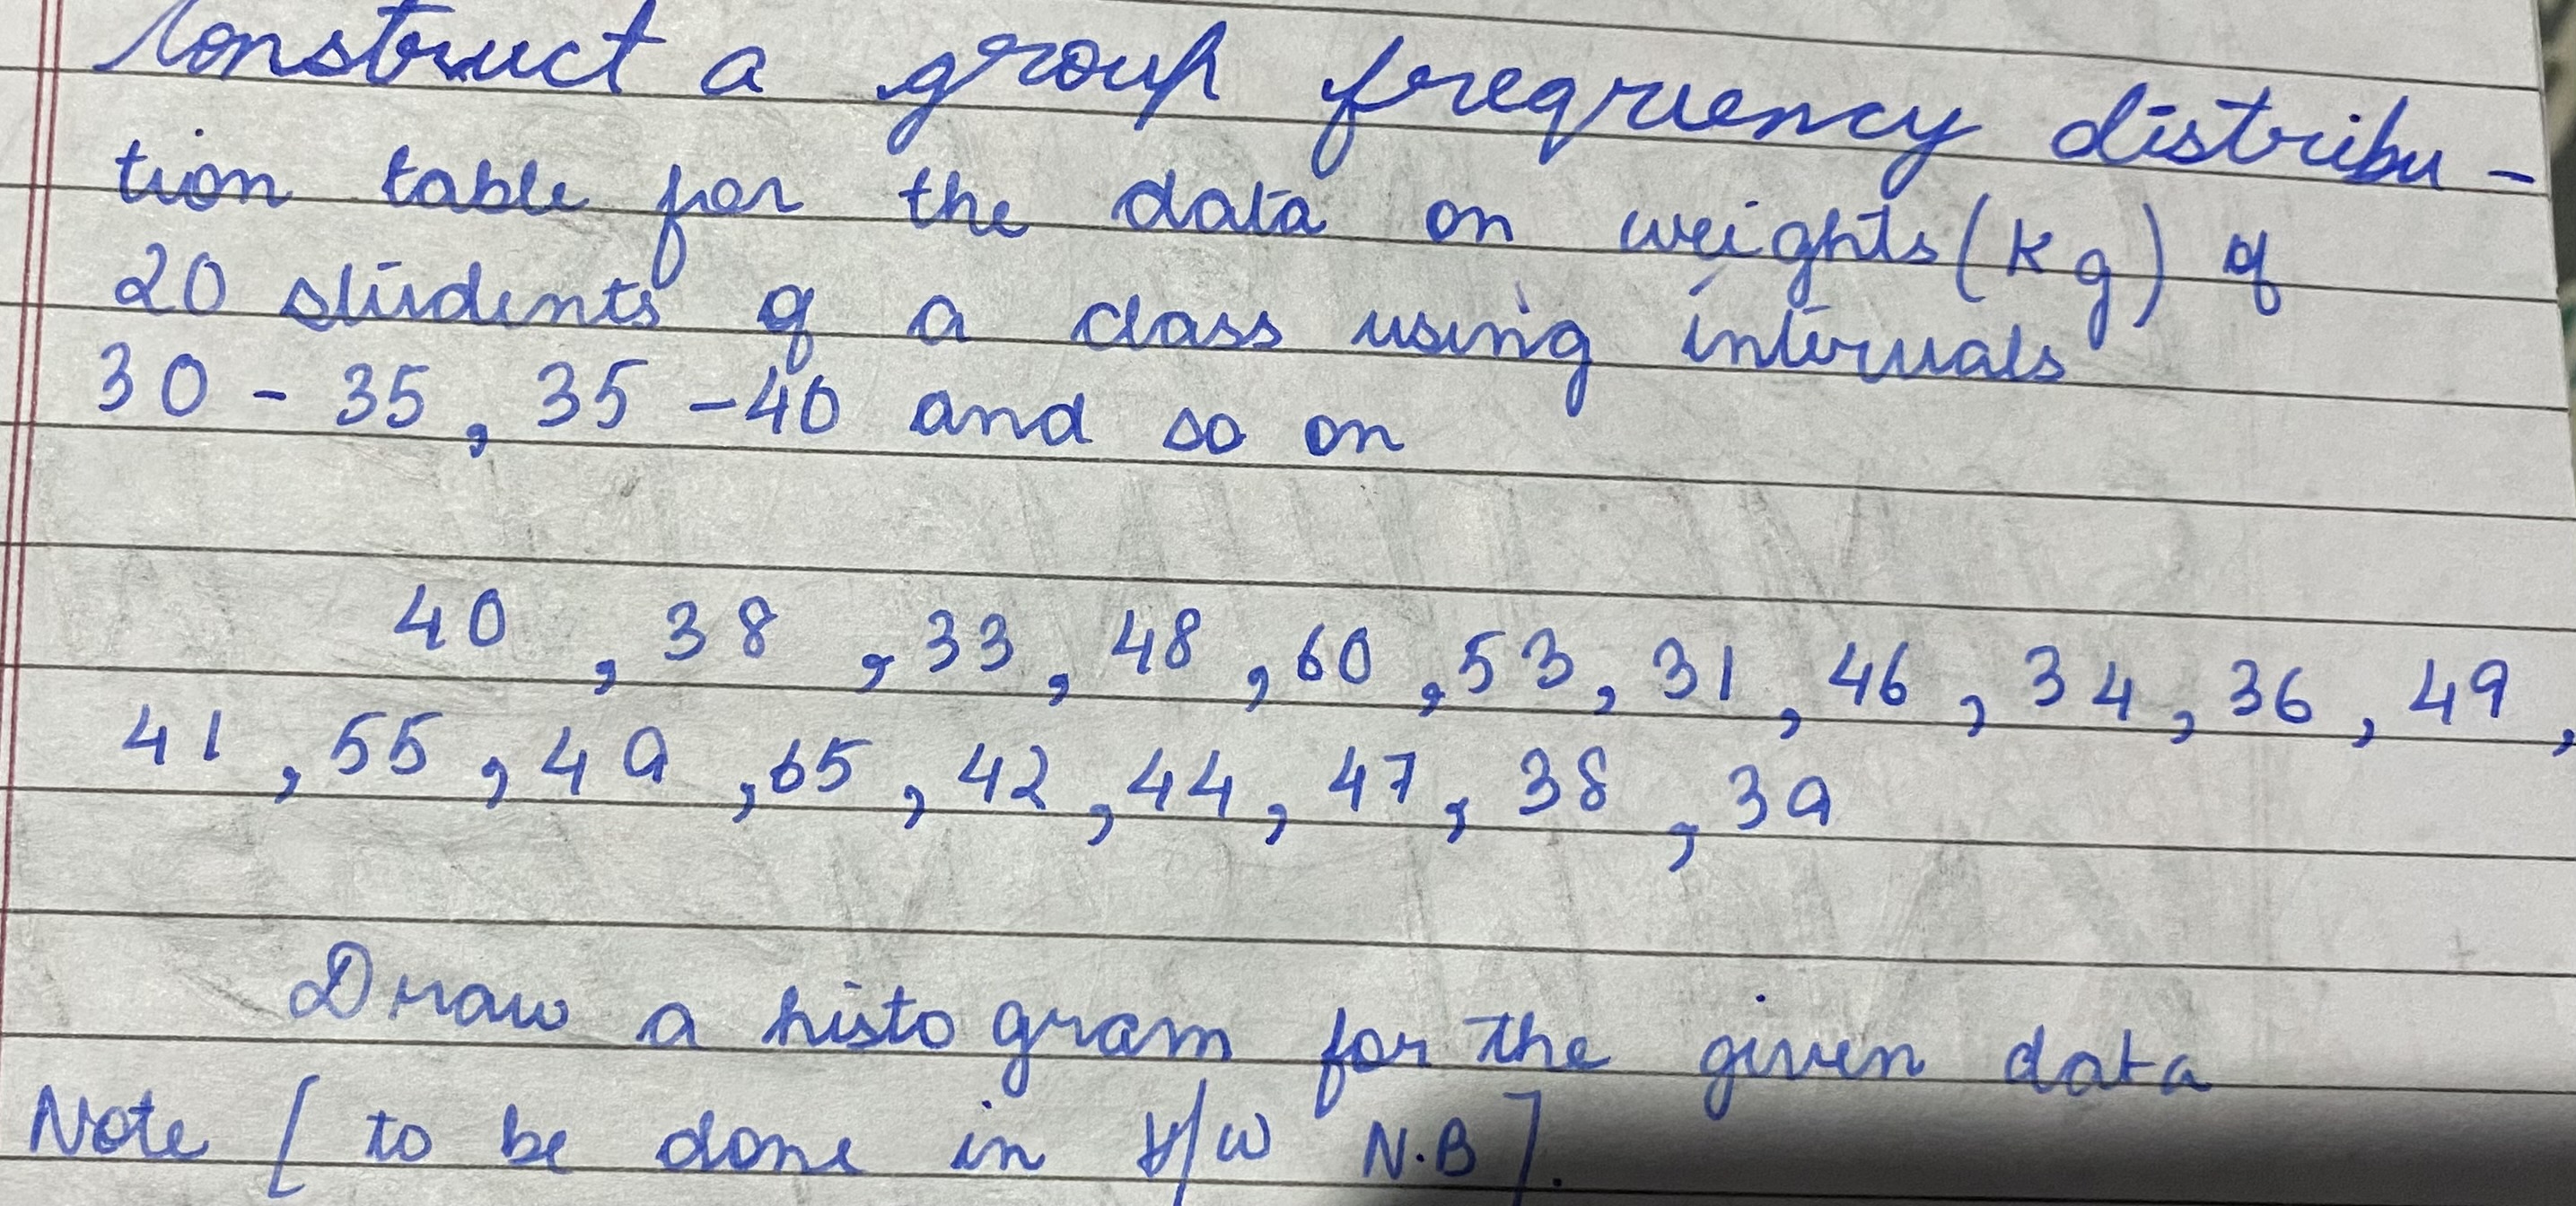 Construct a group frequency distribu -
tion table for the data on weights (kg) of
20 students of a class using intervals
30 - 35, 35 - 40 and so on
40, 38, 33, 48, 60, 53, 31, 46, 34, 36, 49,
41, 55, 49, 65, 42, 44, 47, 38, 39
Draw a histogram for the given data
Note [to be done in H/W N.B].